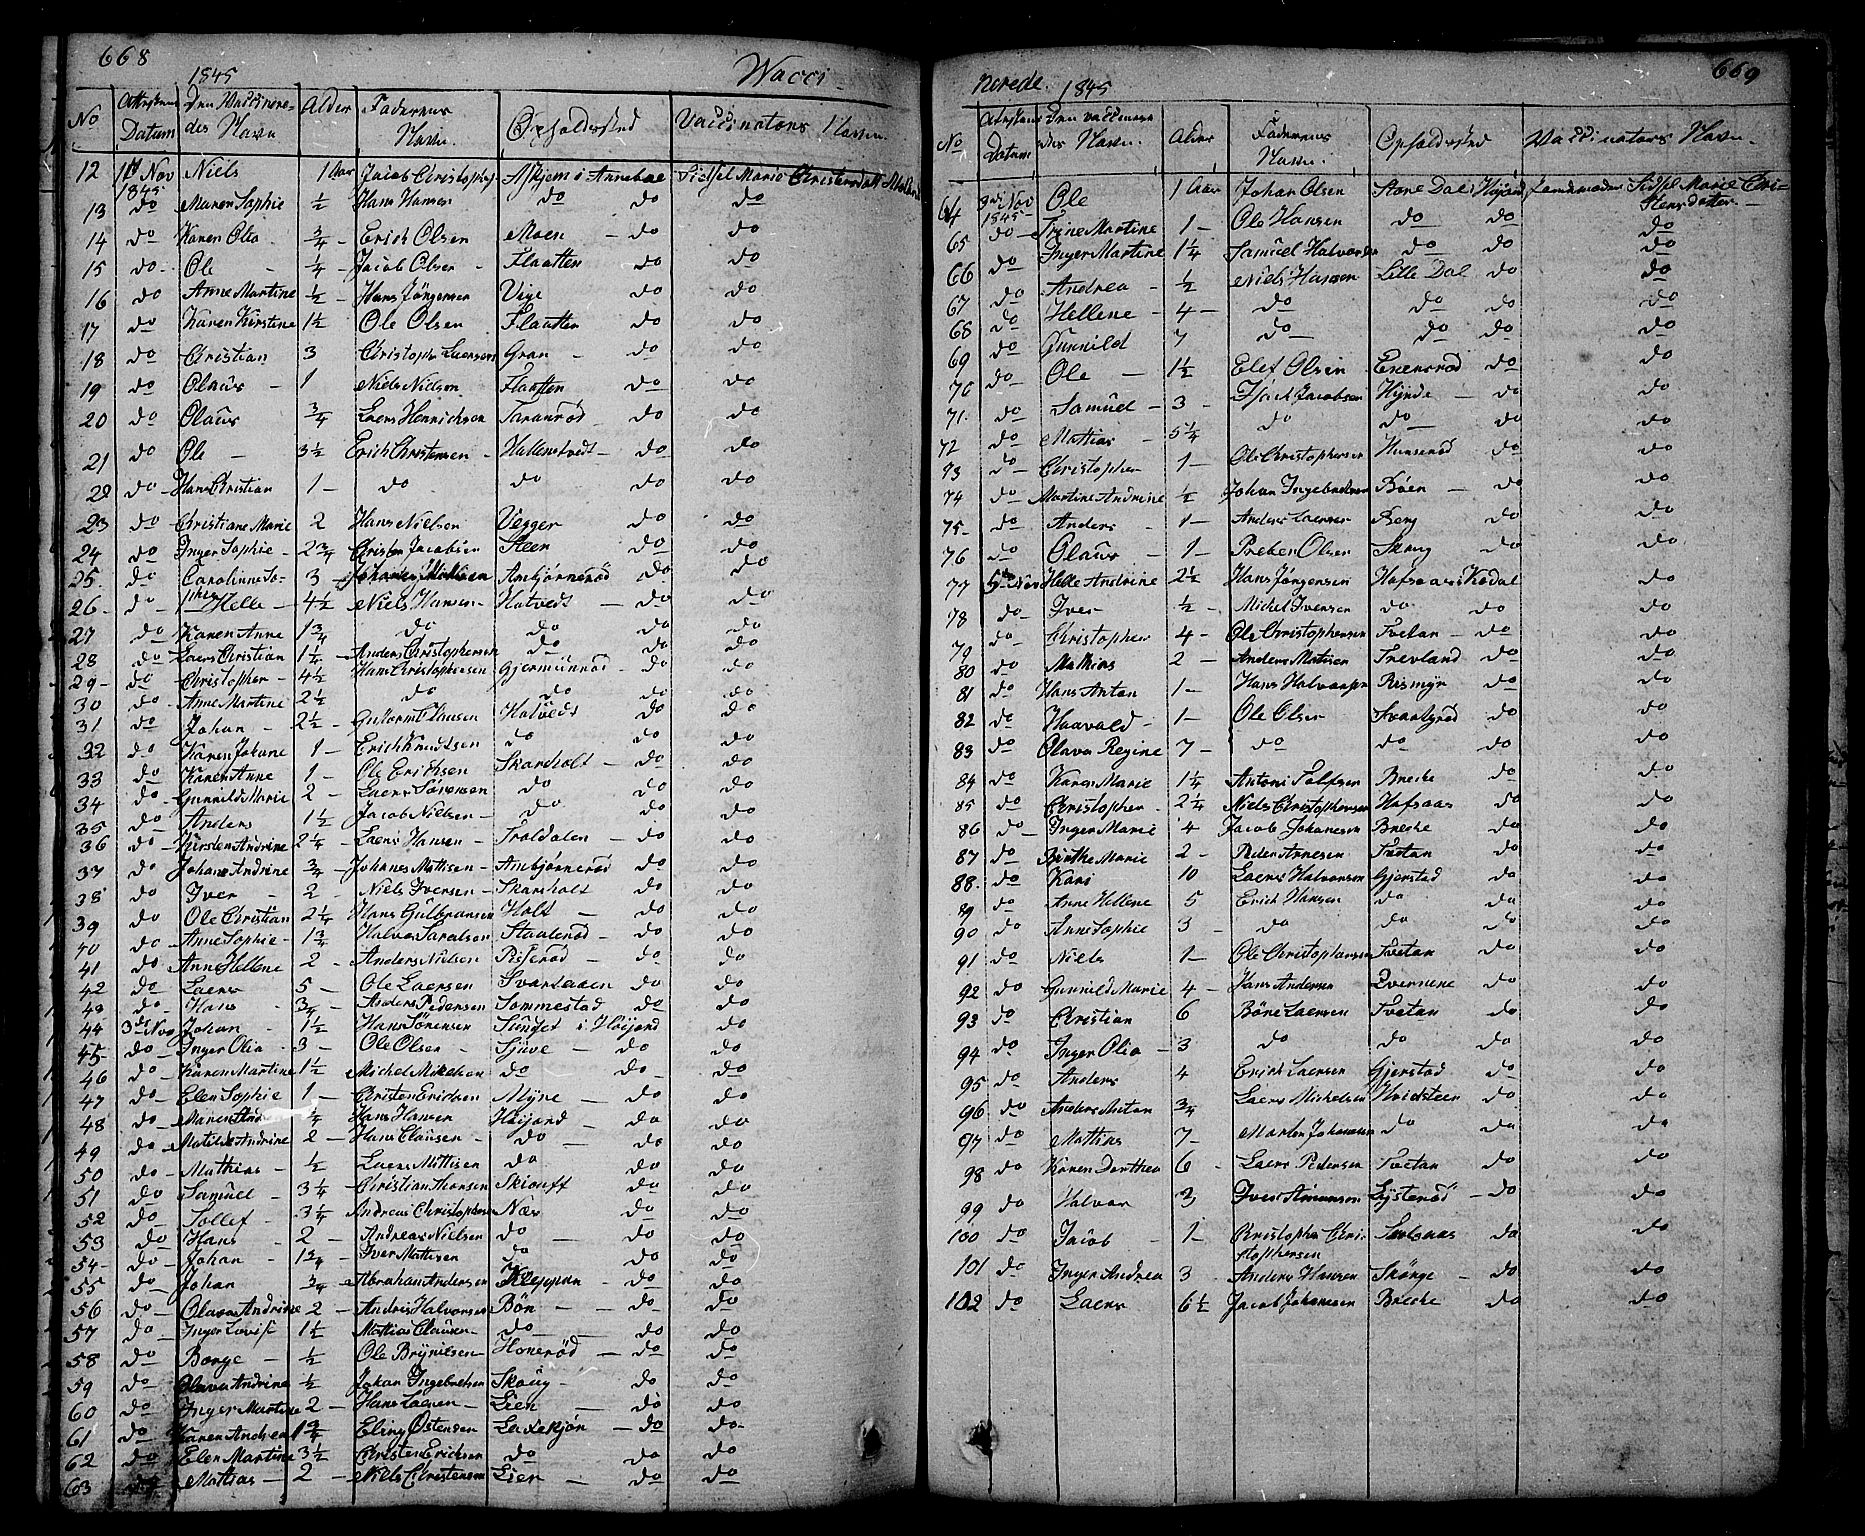 668
1845
Wacci-
No Attestens Datum Den Vaccinere- des Navn Alder Faderens Navn. Opholdssted Vaccinatørs Navn
12 1ste Nov 1845 Niels 1 Aar Jacob Christophs Askjem i Annebae Sidsel Marie Christensdatt
13 do Maren Sophie ½ Hans Hansen do do do
14 do Karen Olia ¾ - Erich Olsen Moen - do do
15 do - Ole - ¼ - Jacob Olsen - Flaatten do do
16 do Anne Martine ½ - Hans Jörgensen Vige do do
17 do Karen Kirstine 1½ Ole Olsen Flaatten do do
18 do Christian 3 Christoph Laersen Gran - do do
19 do Olaus - 1 Niels Nielsen Flaatten do do
20 do Olaus ¾ Laers Henrichsen Taranrød do do
21 do Ole - 3½ Erich Christensen - Hallenstvedt - do do
22 do - Hans Christian 1 - do do do do
23 do - Christiane Marie 2 Hans Nielsen Vegger do do
24 do Inger Sophie - 2¾ Christen Jacobsen Steen do do
25. do Caroline So- phie 3 Johannes Mathisen Ambjørnerød do do
26 - do - Helle - 4½ Niels Hansen - Hotvedt - do do
27 do Karen Anne 1¾ do do do do
28 do Laers Christian 1¼ - Anders Christophersen do do do
29 - do Christopher - 4½ Hans Christophersen Gjermundrød - do do
30 do - Anne Martine 2½ do do do do
31 do Johan - 2½ - Guttorm Clausen Hotvedt do do
32 do Karen Johane 1 - Erich Knudtsen do do do
33 do Karen Anne 1 - Ole Erichsen Skarsholt - do do
34 do - Gunnild Marie 2 - Laers Sørensen do do do
35 do Anders 1½ Jacob Nielsen - do do do
36 do - Kirsten Andrine 2¼ Laers Hansen - Troldalen - do do
37 do Johane Andrine ¾ - Johanes Mattisen - Ambjørnerød do do
38 do Iver - 2 - Niels Iversen - Skarsholt - do do
39 do Ole Christian 2¼ Hans Gulbransen Holt - do do
40 do - Anne Sophie - 1¾ Halvor Saralsen Staalerød - do do
41 do Anne Hellene 2 - Anders Nielsen Pisserød - do do
42 do - Laers 5 - Ole Laersen Svartaaen do do
43 do - Hans ¾ - Anders Pedersen Sommestad do do
44 3die Nov Johan - 1½ Hans Sørensen Sundset i Höijord do
45 - do - Inger Olia - 3 - Ole Olsen - Sjüve - do do
46 do - Karen Martine 1½ Michel Mikelsen do do - do
47 do - Elen Sophie 1 - Christen Erichsen Myre - do do
48 do - Maren And ¼ Hans Hansen Höijord - do do
49 do - Matilde Andrine 2 - Hans Clausen - do - do do
50 do - Mathias - ½ Laers Mattisen do do do
51 do Samuel - 3¼ Christian Thorsen Skiauff do do
52 do - Tollef - 3¼ Andreas Christophersen Næs do do
53 do Hans - 2 - Andreas Nielsen do - do do
54 - do - Johan - 1¾ Iver Mattisen do do do
55 do - Johan ¾ - Abraham Andersen Kleppan - do do
56 do - Olava Andrine 2 - Andris Halvorsen Bön - - do do
57 do - Inger Lovise 1½ Mathias Clausen - do - do do
58 do Børge - ½ Ole Brynilsen - Honerød - do do
59 do - Olava Andrine ½ Johan Ingebretsen Skoug - do do
60 do Inger Martine 2 - Hans Laersen - Lien - do do
61 do - Karen Andrea 1¾ Eling Östensen Ladeskjön - do do -
62 do Elen Martine 3½ Christen Erichsen do do do
63 do Mathias - 2 - Niels Christensen Lier - do do
669
nerede. 1845
No Attestens Datum Den vaccinere des Navn. Alder Faderens Navn. Opholdssted Vaccinatørs Navn
64 3die Nov 1845 Ole 1 Aar Johan Olsen Store Dal i Höijord Jordemoder Sidsel Marie Chri-
stensdatter -
65 do - Trine Martine 1 - Ole Hansen do do do
66 do Inger Martine 1¼ Samuel Halvorsen do do do
67 do Andrea - ½ Niels Hansen Lille Dal do do
68 do Hellene - 4 - do do do do
69 do Gunnild 7 do do do
70 do - Ole - 1½ Elef Olsen Enersrød do do
71. do Samuel - 3 - Jacobsen Hynde - do do
72 do Mathias - 5¼ do do - do
73 do - Christopher 1 - Ole Christophersen Hunserød do do
74 do - Martine Andrine ½ Johan Ingebretsen Böen - do do
75 - do Anders - 1 - Anders Laersen Berg do do
76 do Olaus - 1 - Preben Olsen Skoug do do
77 5te Nov Helle Andrine 2½ Hans Jørgensen Hafsaas i Kodal do
78 do - Iver ½ - Michel Iversen do do do
79 do Christopher 4 - Ole Christophersen Tvetan - do do
80 do Mathias 2 - Anders Matisen Trevland do do
81 do Hans Anton 1 - Hans Halvorsen Rismyr do do
82 do Haavald - 1 - Ole Olsen Svartgrød do do
83 do Olava Regine 7 - do do do do
84 do Karen Marie 1¼ Antoni Tolfsen Breche do do
85 do Christopher - 2¼ Niels Christophersen Hafsaas do do
86 do - Inger Marie 4 Jacob Johanesen Breche do do
87 do Birthe Marie 2 - Peder Arnesen Tvetan do do
88. do Kari 10 Laers Halvorsen Gjerstad do do
89 do Anne Hellene 5 Erich Hansen do do do
90 do Anne Sophie 3 - do do do do
91 do Niels 1 - Ole Christophersen Tvetan do do
92 do Gunnild Marie 4 - Hans Andersen do do
93 do Christian 6 Börre Laersen Tvetan do do
94 do Inger Olia - 3 do do do do
95 do Anders 4 Erich Laersen Gjerstad do do
96 do Anders Anton ¾ Laers Michelsen Hvidsteen do do
97 do Mathias 7 - Morten Johanesen do do do
98 do Karen Dorthea 6 - Laers Pedersen Tvetan do do
99 do Halvor 3 Iver Amonsen Lysterød - do do
100 do Jacob - 1 - Christopher Chri- stophersen do do
101 do Inger Andrea 3 - Anders Hansen Skönge - do do
102 do Laers 6½ Jacob Johanesen Breche do do